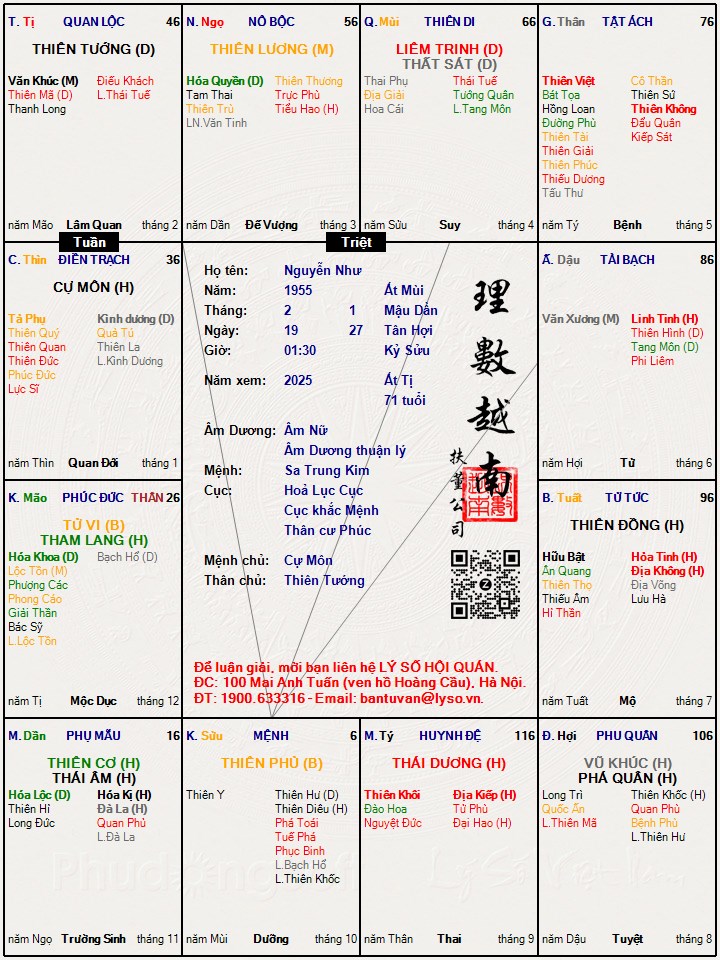 T. Tị QUAN LỘC 46
THIÊN TƯỚNG (D)
Văn Khúc (M) Điếu Khách
Thiên Mã (D) L.Thái Tuế
Thanh Long
năm Mão Lâm Quan tháng 2
N. Ngọ NÔ BỘC 56
THIÊN LƯƠNG (M)
Hóa Quyền (D) Thiên Thương
Tam Thai Trực Phù
Thiên Trù Tiểu Hao (H)
LN.Văn Tinh
năm Dần Đế Vượng tháng 3
Q. Mùi THIÊN DI 66
LIÊM TRINH (D)
THẤT SÁT (D)
Thai Phụ Thái Tuế
Địa Giải Tướng Quân
Hoa Cái L.Tang Môn
năm Sửu Suy tháng 4
G. Thân TẬT ÁCH 76
Thiên Việt Cô Thần
Bát Tọa Thiên Sứ
Hồng Loan Thiên Không
Đường Phù Đẩu Quân
Thiên Tài Kiếp Sát
Thiên Giải
Thiên Phúc
Thiếu Dương
Tấu Thư
năm Tý Bệnh tháng 5
Tuần
Triệt
C. Thìn ĐIỀN TRẠCH 36
CỰ MÔN (H)
Tả Phụ Kình dương (D)
Thiên Quý Quả Tú
Thiên Quan Thiên La
Thiên Đức L.Kình Dương
Phúc Đức
Lực Sĩ
năm Thìn Quan Đới tháng 1
Họ tên: Nguyễn Như
Năm: 1955 Ất Mùi
Tháng: 2 1 Mậu Dần
Ngày: 19 27 Tân Hợi
Giờ: 01:30 Kỷ Sửu
Năm xem: 2025 Ất Tị
71 tuổi
Âm Dương: Âm Nữ
Âm Dương thuận lý
Mệnh: Sa Trung Kim
Cục: Hoả Lục Cục
Cục khắc Mệnh
Thân cư Phúc
Mệnh chủ: Cự Môn
Thân chủ: Thiên Tướng
理
數
越
南
扶
董
公
司
Để luận giải, mời bạn liên hệ LÝ SỐ HỘI QUÁN.
ĐC: 100 Mai Anh Tuấn (ven hồ Hoàng Cầu), Hà Nội.
ĐT: 1900.633316 - Email: bantuvan@lyso.vn.
Ấ. Dậu TÀI BẠCH 86
Văn Xương (M) Linh Tinh (H)
Thiên Hình (D)
Tang Môn (D)
Phi Liêm
năm Hợi Tử tháng 6
K. Mão PHÚC ĐỨC THÂN 26
TỬ VI (B)
THAM LANG (H)
Hóa Khoa (D) Bạch Hổ (D)
Lộc Tồn (M)
Phượng Các
Phong Cáo
Giải Thần
Bác Sỹ
L.Lộc Tồn
năm Tị Mộc Dục tháng 12
B. Tuất TỬ TỨC 96
THIÊN ĐỒNG (H)
Hữu Bật Hỏa Tinh (H)
Ân Quang Địa Không (H)
Thiên Thọ Địa Võng
Thiếu Âm Lưu Hà
Hỉ Thần
năm Tuất Mộ tháng 7
M. Dần PHỤ MẪU 16
THIÊN CƠ (H)
THÁI ÂM (H)
Hóa Lộc (D) Hóa Kị (H)
Thiên Hỉ Đà La (H)
Long Đức Quan Phủ
L.Đà La
năm Ngọ Trường Sinh tháng 11
K. Sửu MỆNH 6
THIÊN PHỦ (B)
Thiên Y Thiên Hư (D)
Thiên Diêu (H)
Phá Toái
Tuế Phá
Phục Binh
L.Bạch Hổ
L.Thiên Khốc
năm Mùi Dưỡng tháng 10
M. Tý HUYNH ĐỆ 116
THÁI DƯƠNG (H)
Thiên Khôi Địa Kiếp (H)
Đào Hoa Tử Phù
Nguyệt Đức Đại Hao (H)
năm Thân Thai tháng 9
Đ. Hợi PHU QUÂN 106
VŨ KHÚC (H)
PHÁ QUÂN (H)
Long Trì Thiên Khốc (H)
Quốc Ấn Quan Phù
L.Thiên Mã Bệnh Phù
L.Thiên Hư
năm Dậu Tuyệt tháng 8